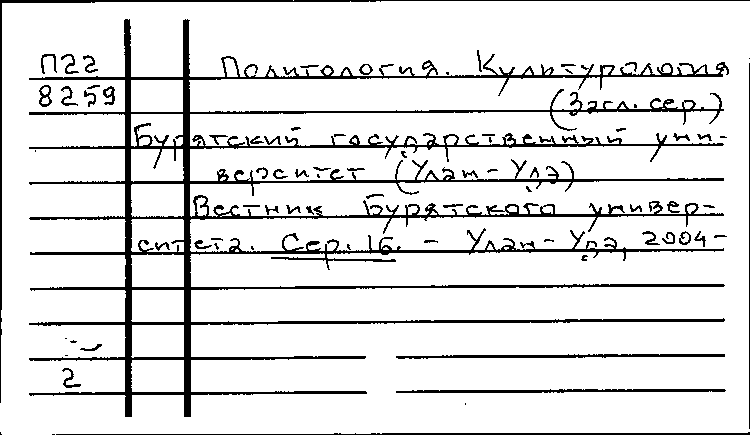 П22 Политология. Культурология
8259 (Загл. сер.)
Бурятский государственный уни-
верситет (Улан-Удэ)
Вестник Бурятского универ-
ситета. Сер. 16. - Улан-Удэ, 2004-
2